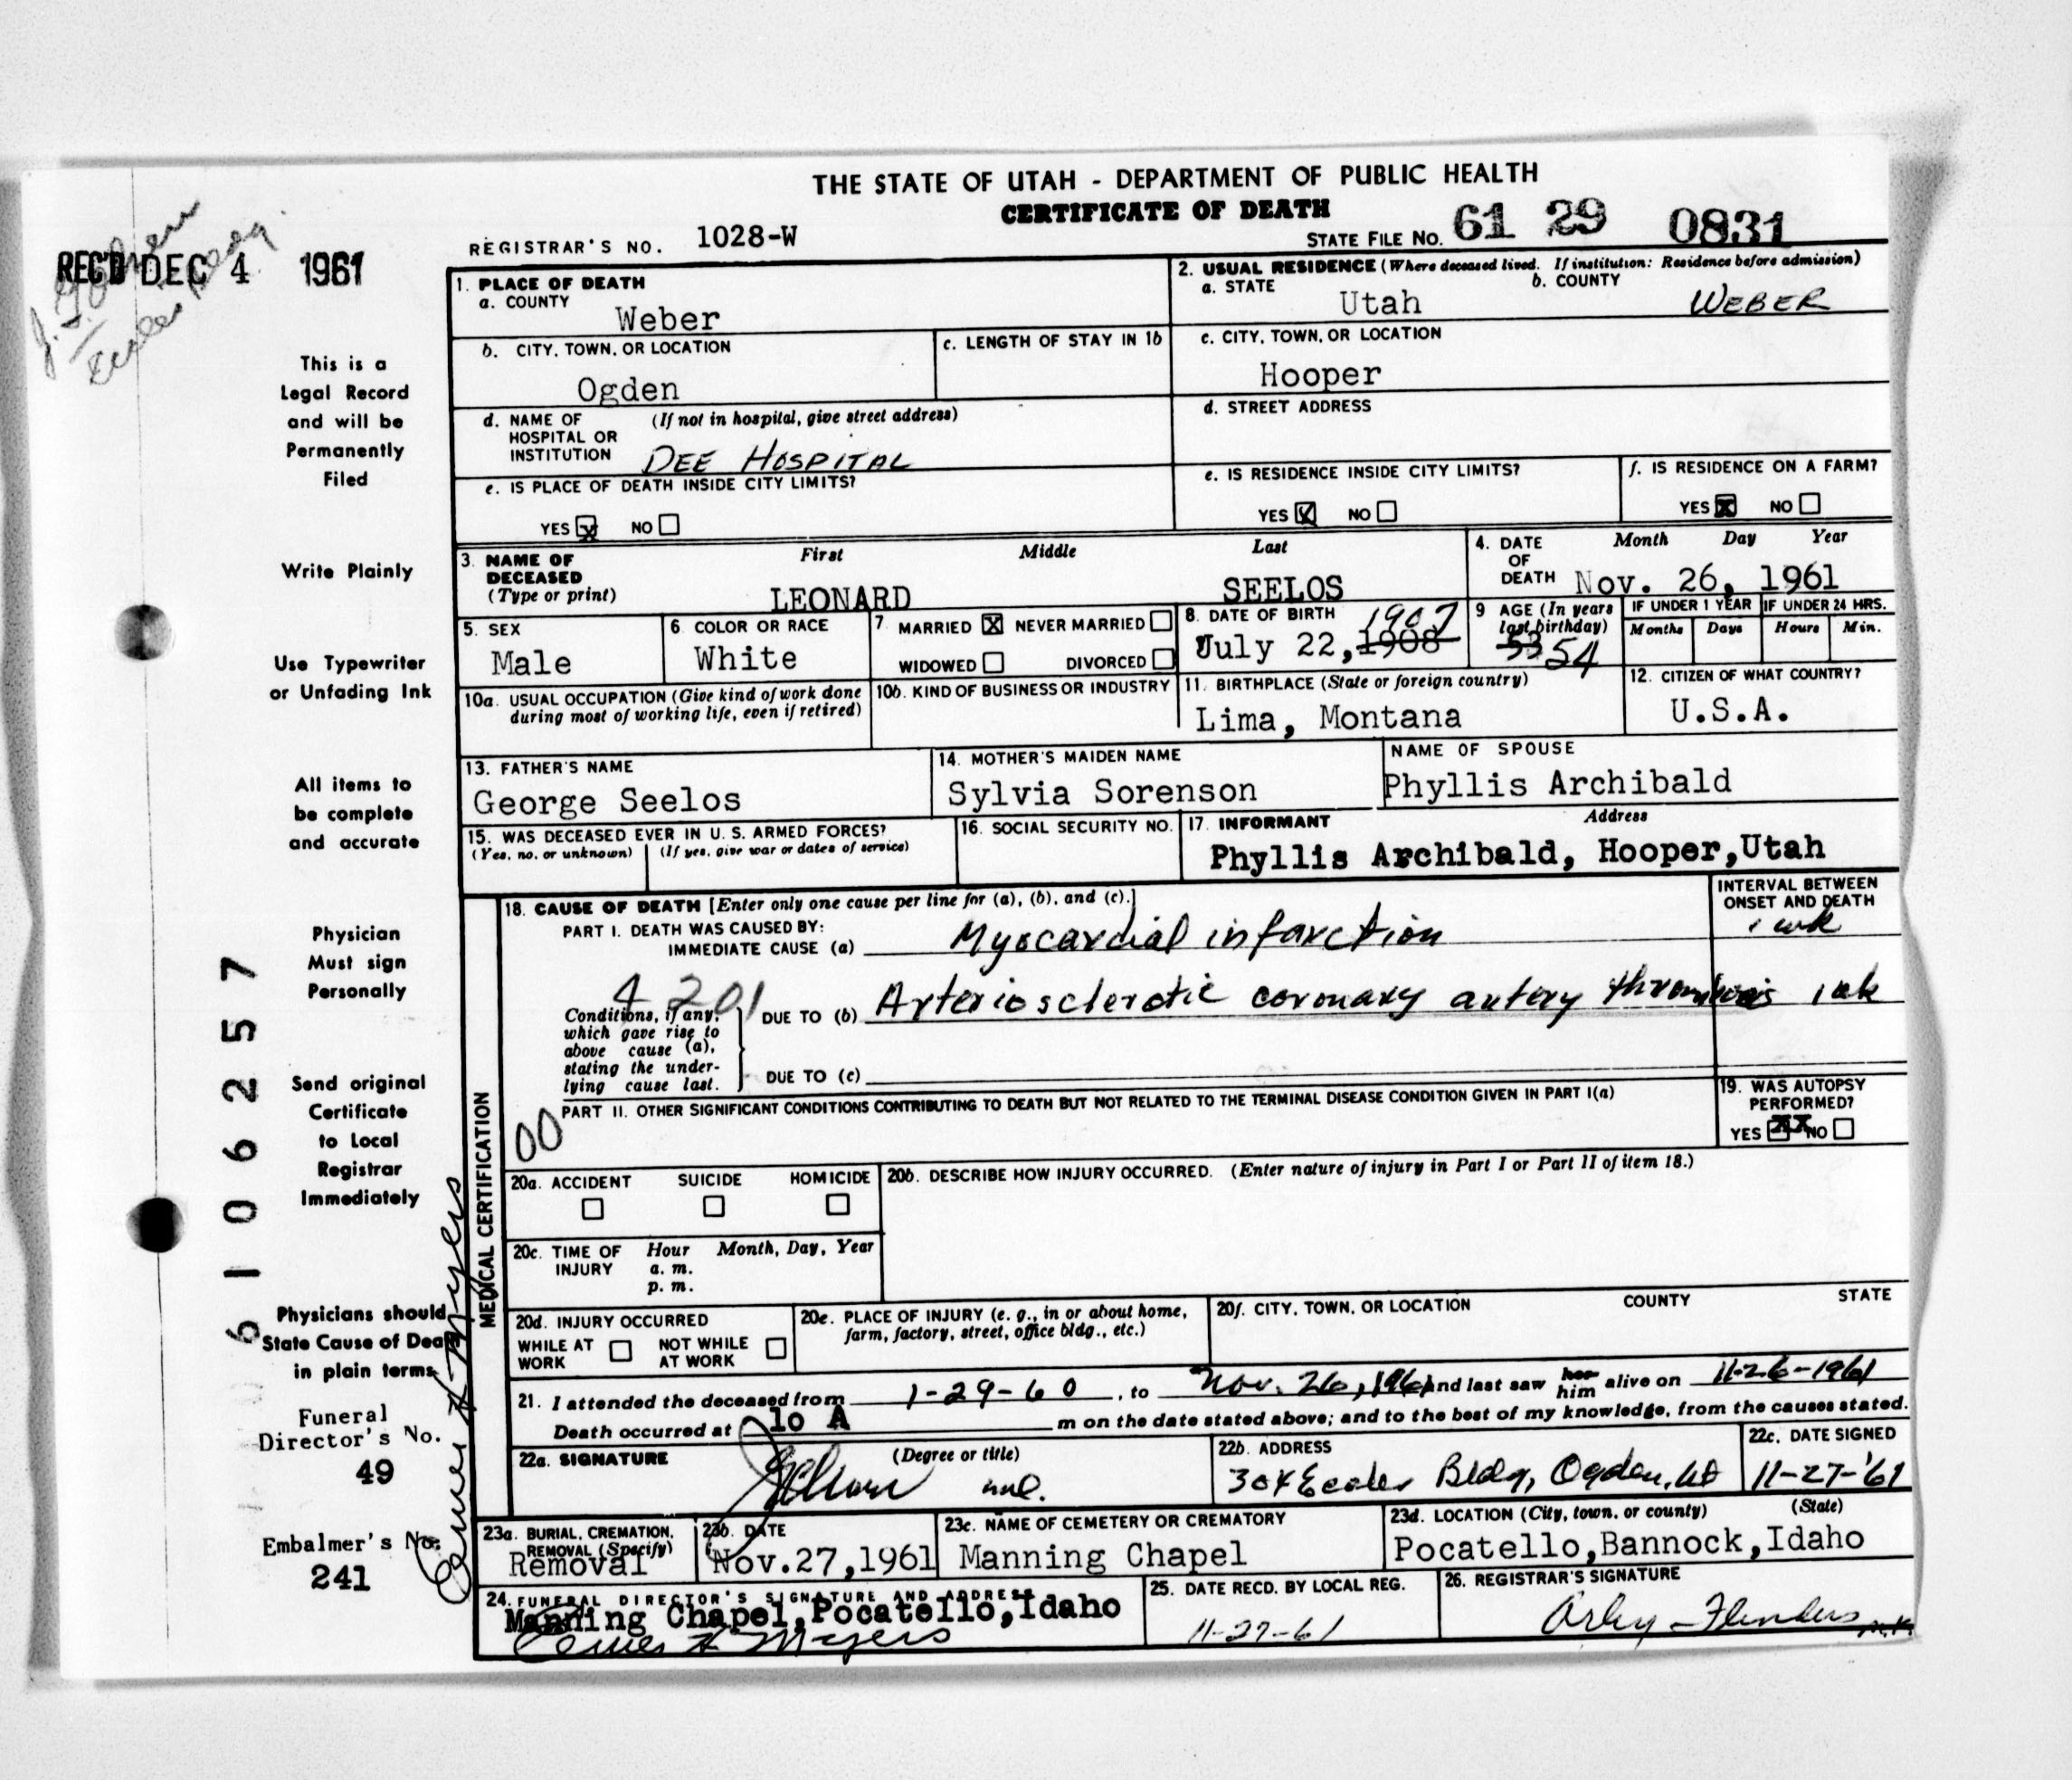 THE STATE OF UTAH - DEPARTMENT OF PUBLIC HEALTH
CERTIFICATE OF DEATH
REGISTRAR'S NO. 1028-W
STATE FILE NO. 61 29 0831
REC'D DEC 4 1961
1. PLACE OF DEATH
a. COUNTY
Weber
2. USUAL RESIDENCE (Where deceased lived. If institution: Residence before admission)
a. STATE b. COUNTY
Utah WEBER
b. CITY, TOWN, OR LOCATION
Ogden
c. LENGTH OF STAY IN 1b
c. CITY, TOWN, OR LOCATION
Hooper
d. NAME OF HOSPITAL OR INSTITUTION (If not in hospital, give street address)
DEE HOSPITAL
d. STREET ADDRESS
e. IS PLACE OF DEATH INSIDE CITY LIMITS?
YES X NO
e. IS RESIDENCE INSIDE CITY LIMITS?
YES X NO
f. IS RESIDENCE ON A FARM?
YES X NO
3. NAME OF DECEASED (Type or print)
First Middle Last
LEONARD SEELOS
4. DATE OF DEATH
Month Day Year
Nov. 26, 1961
5. SEX
Male
6. COLOR OR RACE
White
7. MARRIED X NEVER MARRIED
WIDOWED DIVORCED
8. DATE OF BIRTH
1907
July 22, 1908
9 AGE (In years last birthday)
53 54
IF UNDER 1 YEAR
Months Days
IF UNDER 24 HRS.
Hours Min.
10a. USUAL OCCUPATION (Give kind of work done during most of working life, even if retired)
10b. KIND OF BUSINESS OR INDUSTRY
11. BIRTHPLACE (State or foreign country)
Lima, Montana
12. CITIZEN OF WHAT COUNTRY?
U.S.A.
13. FATHER'S NAME
George Seelos
14. MOTHER'S MAIDEN NAME
Sylvia Sorenson
NAME OF SPOUSE
Phyllis Archibald
15. WAS DECEASED EVER IN U. S. ARMED FORCES?
(Yes, no, or unknown) (If yes, give war or dates of service)
16. SOCIAL SECURITY NO.
17. INFORMANT Address
Phyllis Archibald, Hooper,Utah
MEDICAL CERTIFICATION
18. CAUSE OF DEATH [Enter only one cause per line for (a), (b), and (c).]
INTERVAL BETWEEN ONSET AND DEATH
PART I. DEATH WAS CAUSED BY:
IMMEDIATE CAUSE (a) Myocardial infarction 1 wk
4201
Conditions, if any, which gave rise to above cause (a), stating the underlying cause last.
DUE TO (b) Arteriosclerotic coronary artery thrombosis 1 wk
DUE TO (c)
PART II. OTHER SIGNIFICANT CONDITIONS CONTRIBUTING TO DEATH BUT NOT RELATED TO THE TERMINAL DISEASE CONDITION GIVEN IN PART I(a)
00
19. WAS AUTOPSY PERFORMED?
YES XX NO
20a. ACCIDENT SUICIDE HOMICIDE
20b. DESCRIBE HOW INJURY OCCURRED. (Enter nature of injury in Part I or Part II of item 18.)
20c. TIME OF INJURY Hour Month, Day, Year
a. m.
p. m.
20d. INJURY OCCURRED
WHILE AT WORK NOT WHILE AT WORK
20e. PLACE OF INJURY (e. g., in or about home, farm, factory, street, office bldg., etc.)
20f. CITY, TOWN, OR LOCATION COUNTY STATE
21. I attended the deceased from 1-29-60, to Nov. 26, 1961 and last saw her him alive on 11-26-1961
Death occurred at 10 A m on the date stated above; and to the best of my knowledge, from the causes stated.
22a. SIGNATURE (Degree or title)
22b. ADDRESS
304 Eccles Bldg, Ogden, Ut
22c. DATE SIGNED
11-27-'61
23a. BURIAL, CREMATION, REMOVAL (Specify)
Removal
23b. DATE
Nov.27,1961
23c. NAME OF CEMETERY OR CREMATORY
Manning Chapel
23d. LOCATION (City, town, or county) (State)
Pocatello,Bannock,Idaho
24. FUNERAL DIRECTOR'S SIGNATURE AND ADDRESS
Manning Chapel,Pocatello,Idaho
25. DATE RECD. BY LOCAL REG.
11-27-61
26. REGISTRAR'S SIGNATURE
This is a
Legal Record
and will be
Permanently
Filed
Write Plainly
Use Typewriter
or Unfading Ink
All items to
be complete
and accurate
Physician
Must sign
Personally
Send original
Certificate
to Local
Registrar
Immediately
Physicians should
State Cause of Death
in plain terms
Funeral
Director's No.
49
Embalmer's No.
241
61 06257